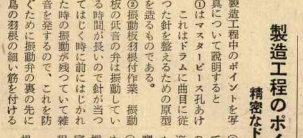 製造工程のポ
精密なド
製造工程中のポイントを写
真について説明すると
①はマスターピースにあけ
これはドラムに曲目に従
つた針を整えるための原型
を造るものである。
②振動板羽根付作業　振動
板の低音の弁は振動してい
る時間が長いので針が当つ
てはじく時に前にはじかれ
た時の振動が残つていて雑
音を発するので、これを防
ぐために振動弁の裏の先に
鳥の羽根の細い筋を付ける